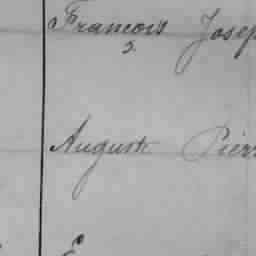 François Josep
Auguste Pierr
E